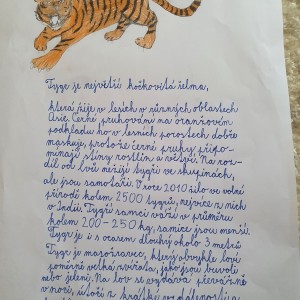 Tygr je největší kočkovitá šelma,
která žije v lesích v různých oblastech
Asie. Černé pruhování na oranžovém
podkladu ho v lesních porostech dobře
maskuje, protože černé pruhy připo-
mínají stíny rostlin a větví. Na roz-
díl od lvů nežijí tygři ve skupinách,
ale jsou samotáři. V roce 2010 žilo ve volné
přírodě kolem 2500 tygrů, nejvíce z nich
v Indii. Tygří samci váží v průměru
kolem 200-250 kg, samice jsou menší.
Tygr je i s ocasem dlouhý okolo 3 metrů.
Tygr je masožravec, který obvykle loví
poměrně velká zvířata, jako jsou buvoli
nebo jeleni. Na lov se vydává převážně
v noci, útočí z krátké vzdálenosti